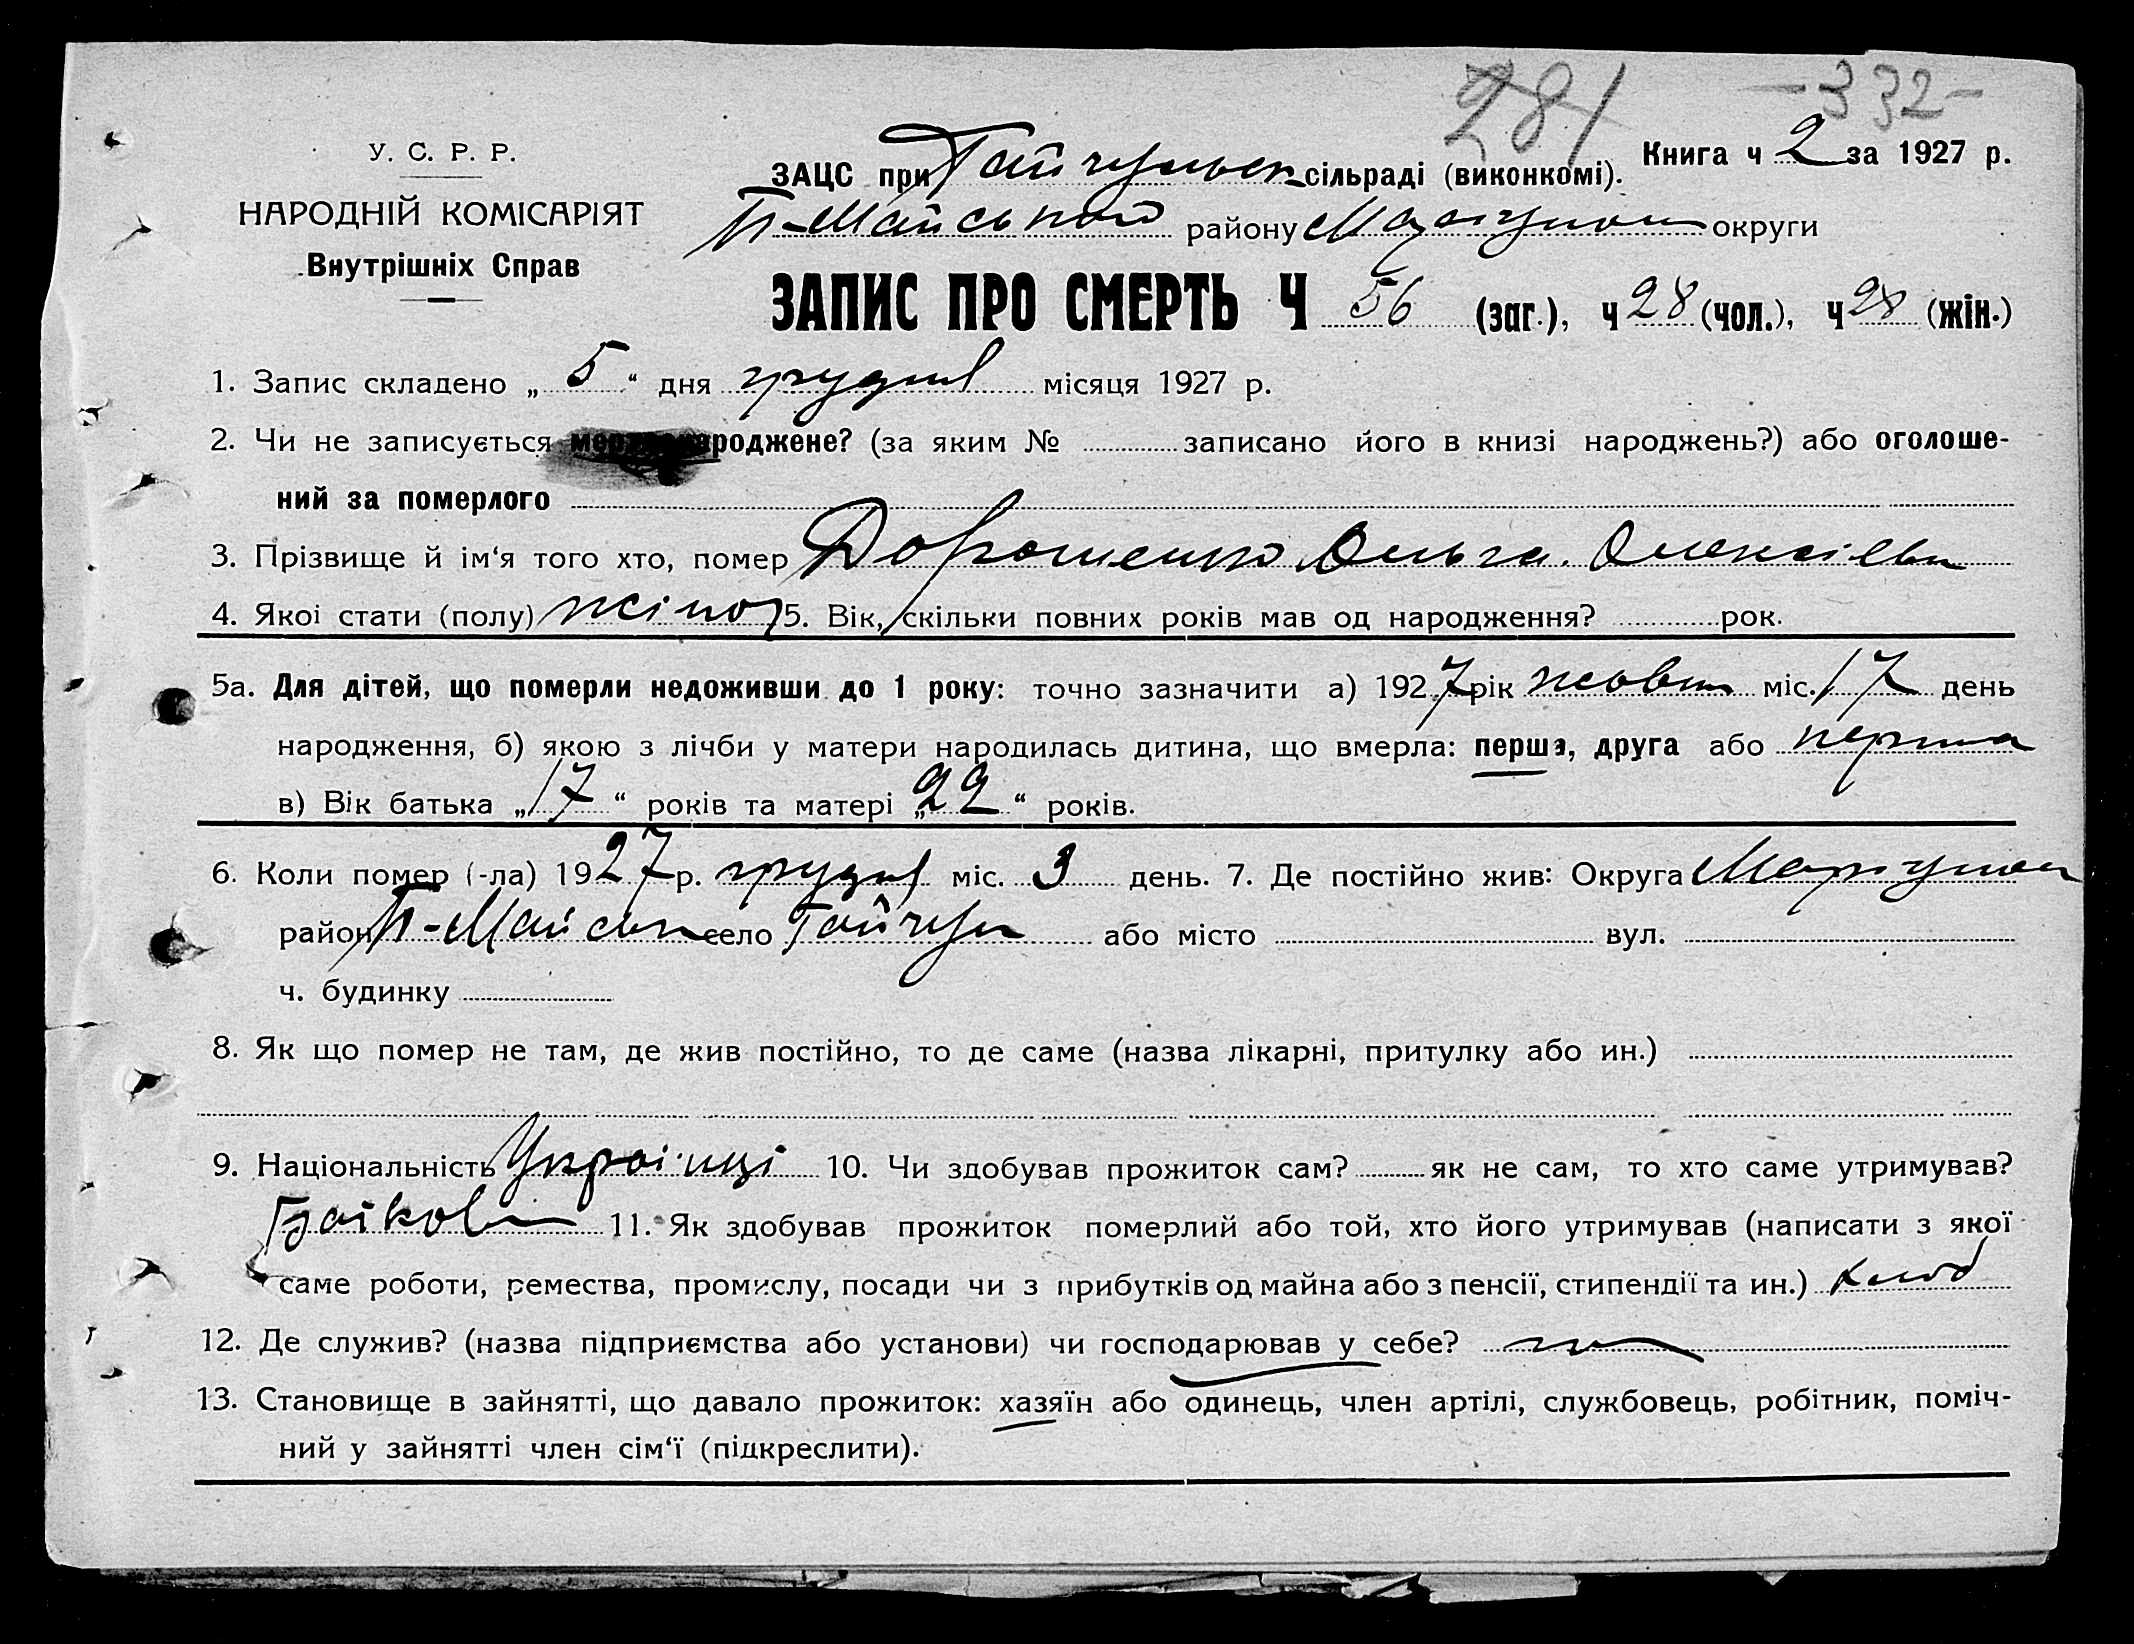 281 -332-
У. С. Р. Р.
НАРОДНІЙ КОМІСАРІЯТ
Внутрішніх Справ
ЗАЦС при Гайчульск сільраді (виконкомі). Книга ч 2 за 1927 р.
П-Майського району Маріупол округи
ЗАПИС ПРО СМЕРТЬ Ч 56 (заг.), ч 28 (чол.), ч 28 (жін.)
1. Запис складено „ 5 “ дня грудня місяця 1927 р.
2. Чи не записується мертвонароджене? (за яким № записано його в книзі народжень?) або оголоше-
ний за померлого
3. Прізвище й ім‘я того хто, помер Дорошенко Ольга. Олексієвн
4. Якої стати (полу) жіно 5. Вік, скільки повних років мав од народження? рок.
5а. Для дітей, що померли недоживши до 1 року: точно зазначити а) 1927 рік жовтн міс. 17 день
народження, б) якою з лічби у матери народилась дитина, що вмерла: перша, друга або перша
в) Вік батька „17“ років та матері „22“ років.
6. Коли помер (-ла) 1927 р. грудня міс. 3 день. 7. Де постійно жив: Округа Маріупол
район П-Майськ село Гайчул або місто вул.
ч. будинку
8. Як що помер не там, де жив постійно, то де саме (назва лікарні, притулку або ин.)
9. Національність Украінці 10. Чи здобував прожиток сам? як не сам, то хто саме утримував?
11. Як здобував прожиток померлий або той, хто його утримував (написати з якої
саме роботи, ремества, промислу, посади чи з прибутків од майна або з пенсії, стипендії та ин.)
12. Де служив? (назва підприємства або установи) чи господарював у себе?
13. Становище в зайнятті, що давало прожиток: хазяїн або одинець, член артілі, службовець, робітник, поміч-
ний у зайнятті член сім‘ї (підкреслити).